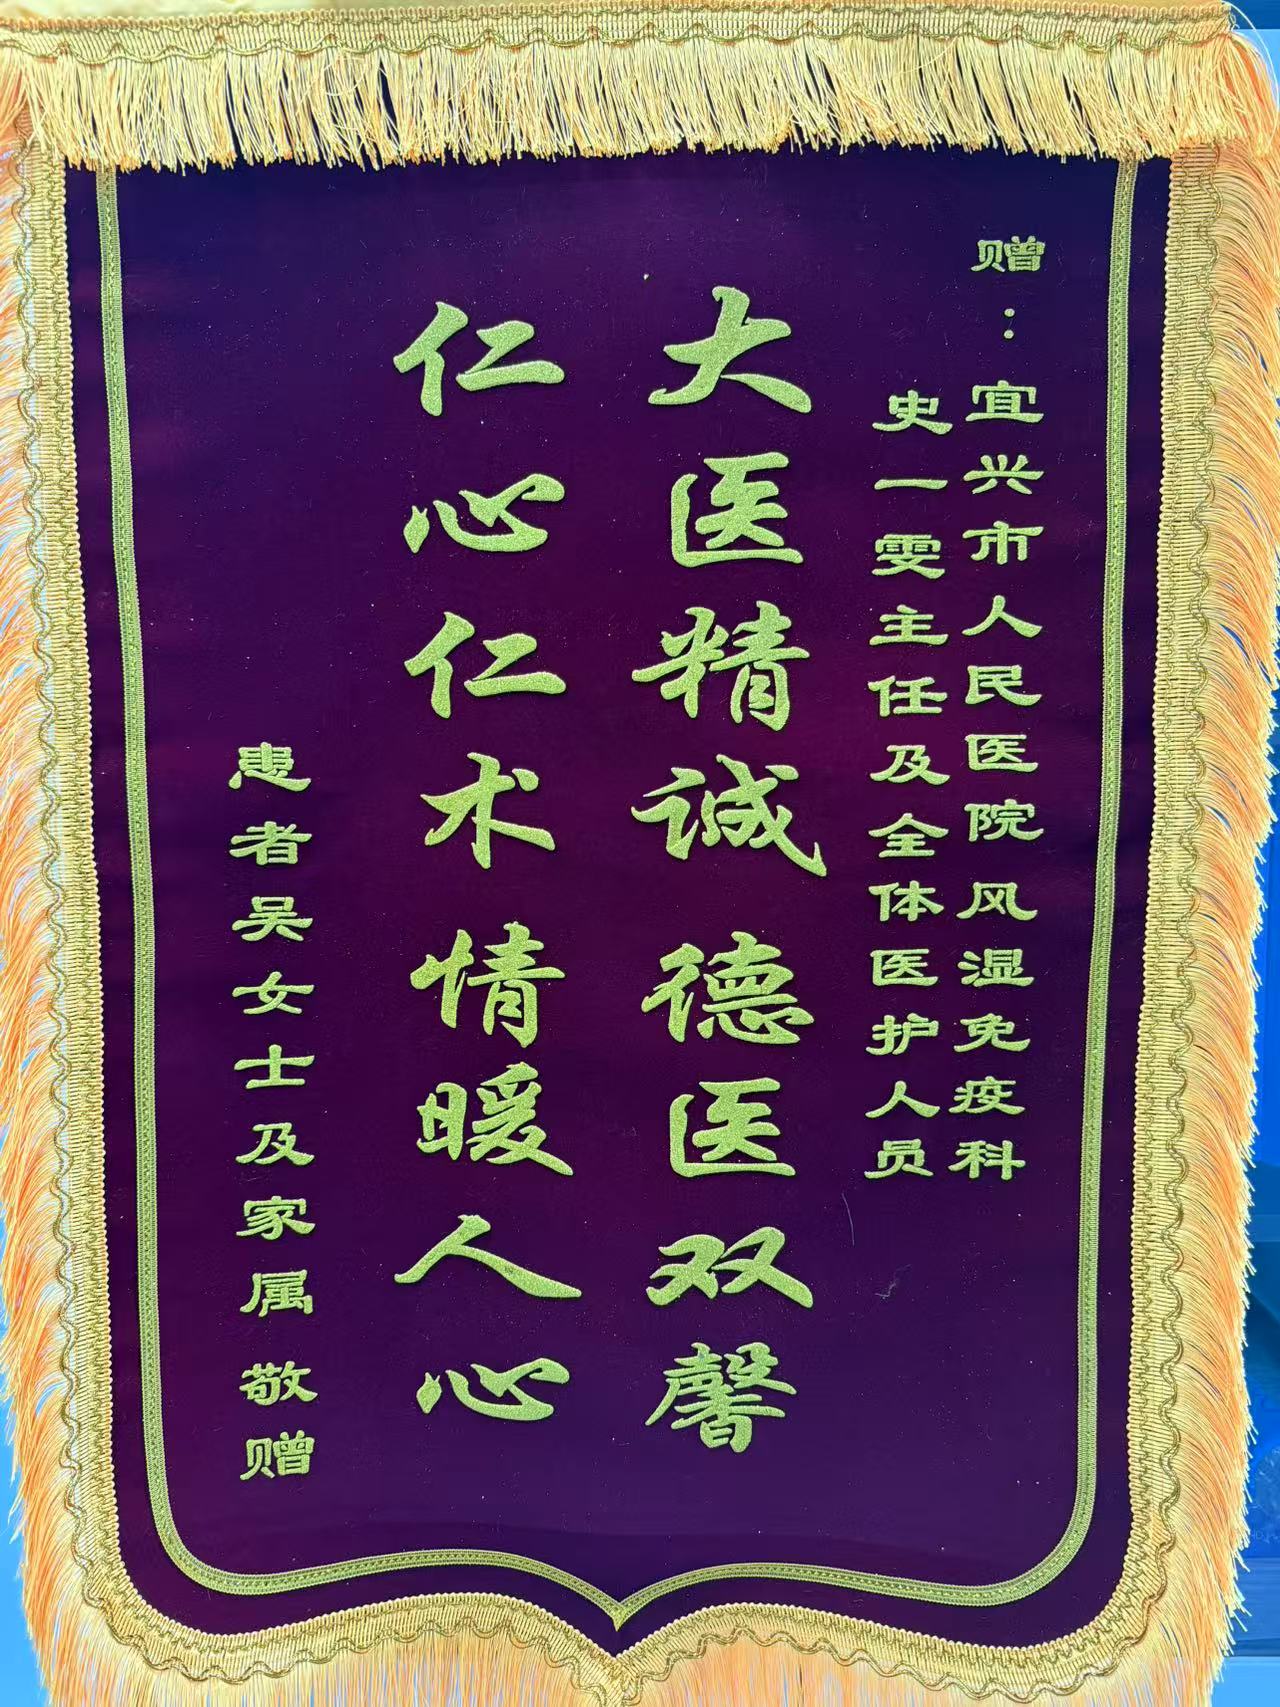 赠：宜兴市人民医院风湿免疫科
史一雯主任及全体医护人员
大医精诚德医双馨
仁心仁术情暖人心
患者吴女士及家属敬赠